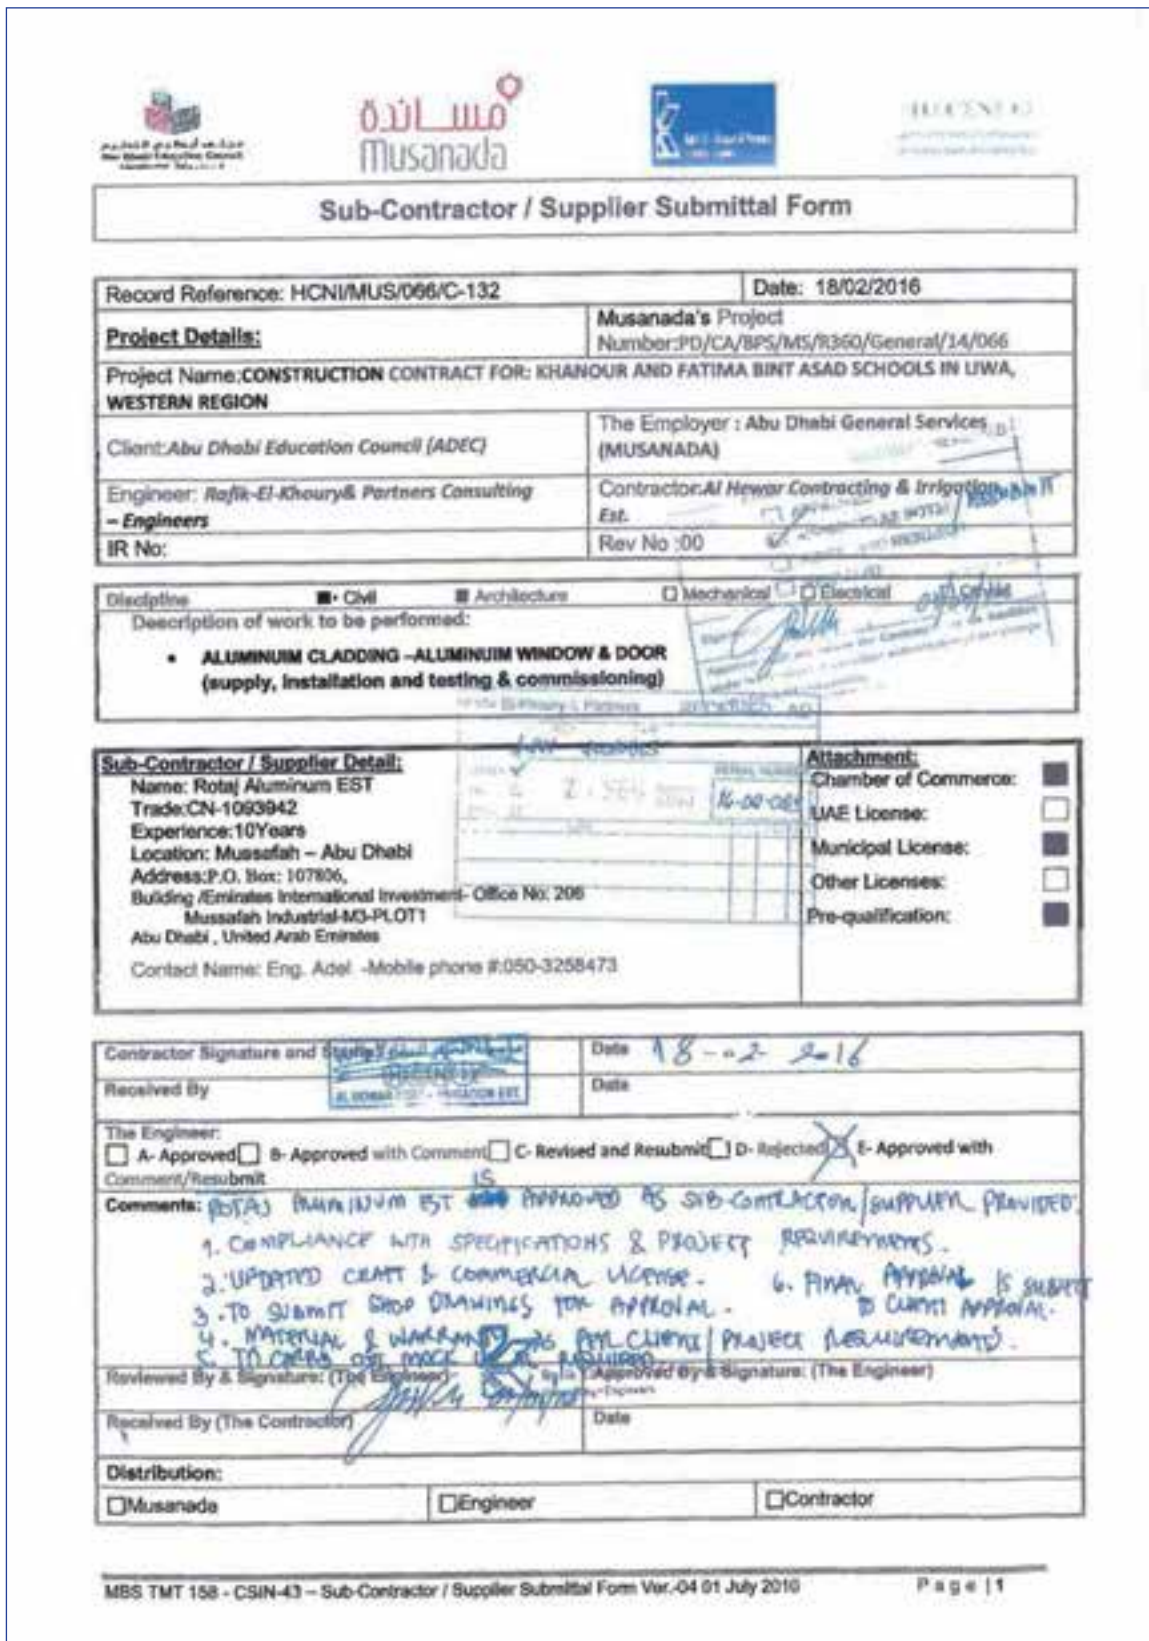 مساندة
musanada
Sub-Contractor / Supplier Submittal Form
Record Reference: HCNI/MUS/066/C-132
Date: 18/02/2016
Project Details:
Musanada's Project
Number:PD/CA/BPS/MS/R360/General/14/066
Project Name:CONSTRUCTION CONTRACT FOR: KHANOUR AND FATIMA BINT ASAD SCHOOLS IN LIWA,
WESTERN REGION
Client:Abu Dhabi Education Council (ADEC)
The Employer : Abu Dhabi General Services
(MUSANADA)
Engineer: Rafik-El-Khoury& Partners Consulting
– Engineers
Contractor:Al Hewar Contracting & Irrigation
Est.
IR No:
Rev No :00
Discipline Civil Architecture Mechanical Electrical
Description of work to be performed:
• ALUMINUIM CLADDING –ALUMINUIM WINDOW & DOOR
(supply, installation and testing & commissioning)
Sub-Contractor / Supplier Detail:
Name: Rotaj Aluminum EST
Trade:CN-1093942
Experience:10Years
Location: Mussafah – Abu Dhabi
Address:P.O. Box: 107806,
Building /Emirates International Investment- Office No: 206
Mussafah Industrial-M3-PLOT1
Abu Dhabi , United Arab Emirates
Contact Name: Eng. Adel -Mobile phone #:050-3258473
Attachment:
Chamber of Commerce:
UAE License:
Municipal License:
Other Licenses:
Pre-qualification:
Contractor Signature and
Date 18-02-2016
Received By
Date
The Engineer:
A- Approved B- Approved with Comment C- Revised and Resubmit D- Rejected E- Approved with
Comment/Resubmit
Comments: ROTAJ ALUMINUM EST IS APPROVED AS SUB-CONTRACTOR/SUPPLIER PROVIDED:
1. COMPLIANCE WITH SPECIFICATIONS & PROJECT REQUIREMENTS.
2. UPDATED CRAFT & COMMERCIAL LICENSE.
3. TO SUBMIT SHOP DRAWINGS FOR APPROVAL.
4. MATERIAL & WARRANTY AS PER CLIENT/PROJECT REQUIREMENTS.
5. TO CARRY OUT MOCK UP REQUIRED
6. FINAL APPROVAL IS SUBJECT
TO CLIENT APPROVAL.
Reviewed By & Signature: (The Engineer)
Approved By & Signature: (The Engineer)
Received By (The Contractor)
Date
Distribution:
Musanada
Engineer
Contractor
MBS TMT 158 - CSIN-43 – Sub-Contractor / Supplier Submittal Form Ver.-04 01 July 2010
Page |1